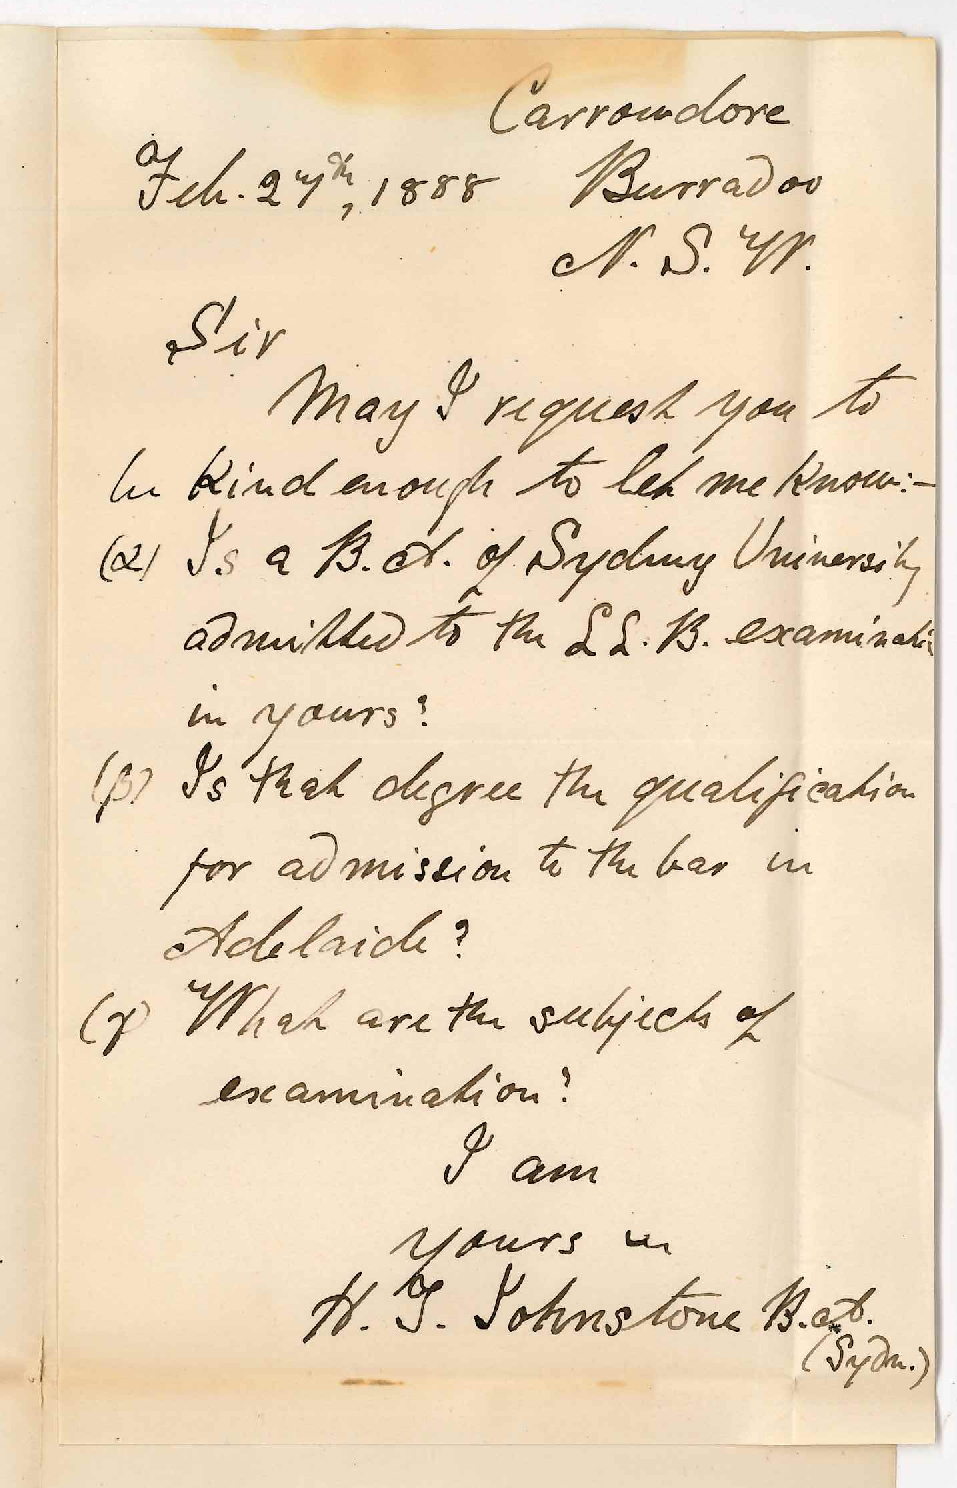 Carrowdore
Feb. 27th, 1888 Burradoo
N. S. W.
Sir
May I request you to
be kind enough to let me know:-
(α) Is a B.A. of Sydney University
admitted to the LL.B. examination
in yours?
(β) Is that degree the qualification
for admission to the bar in
Adelaide?
(γ) What are the subjects of
examination?
I am
yours
H. Johnstone B.A.
(Sydn.)